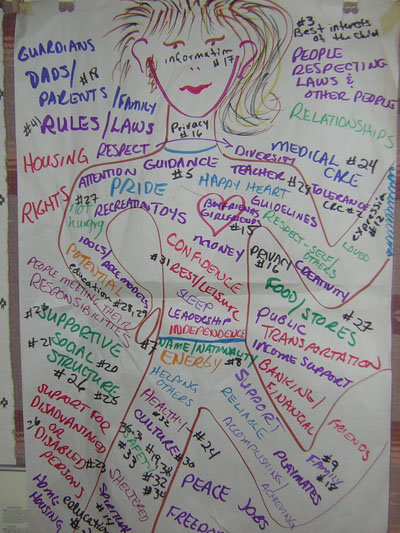 #3
Best interests
of the child
information
#17
GUARDIANS
DADS/ #18
PARENTS/FAMILY
#41 RULES/LAWS
PEOPLE
RESPECTING
LAWS &
OTHER PEOPLE
RELATIONSHIPS
Privacy
#16
HOUSING
RESPECT
DIVERSITY
MEDICAL #24
CARE
GUIDANCE
#5
TEACHER
#27
RIGHTS
ATTENTION
PRIDE
HAPPY HEART
TOLERANCE
CRC #2
not
hungry
RECREATION
TOYS
BOYFRIENDS
GIRLFRIENDS
#15
GUIDELINES
RESPECT-SELF/
OTHERS
LOVED
TOOLS/
ROLE MODELS
MONEY
PRIVACY
#16
CREATIVITY
POTENTIAL
education #28, 29
CONFIDENCE
#31 REST/LEISURE
FOOD/STORES
#27
PEOPLE MEETING THEIR
RESPONSIBILITIES
SLEEP
LEADERSHIP
INDEPENDENCE
PUBLIC
TRANSPORTATION
SUPPORTIVE
#21 SOCIAL #20
STRUCTURE
#26 #25
#7
NAME/NATIONALITY
#8
ENERGY
INCOME SUPPORT
BANKING/
FINANCIAL
HELPING
OTHERS
SUPPORT
RELIABLE
FRIENDS
SUPPORT FOR
DISADVANTAGED
OR
DISABLED
PERSONS
#23
HEALTHY
CULTURE
#24
#30
SAFETY
#33
ACCOMPLISHING/
ACHIEVING
PLAYMATES
FAMILY
#9
#18
SHELTERED
SPIRITUAL
#14
HOME
HOUSING
education
PEACE
JOBS
FREEDOM